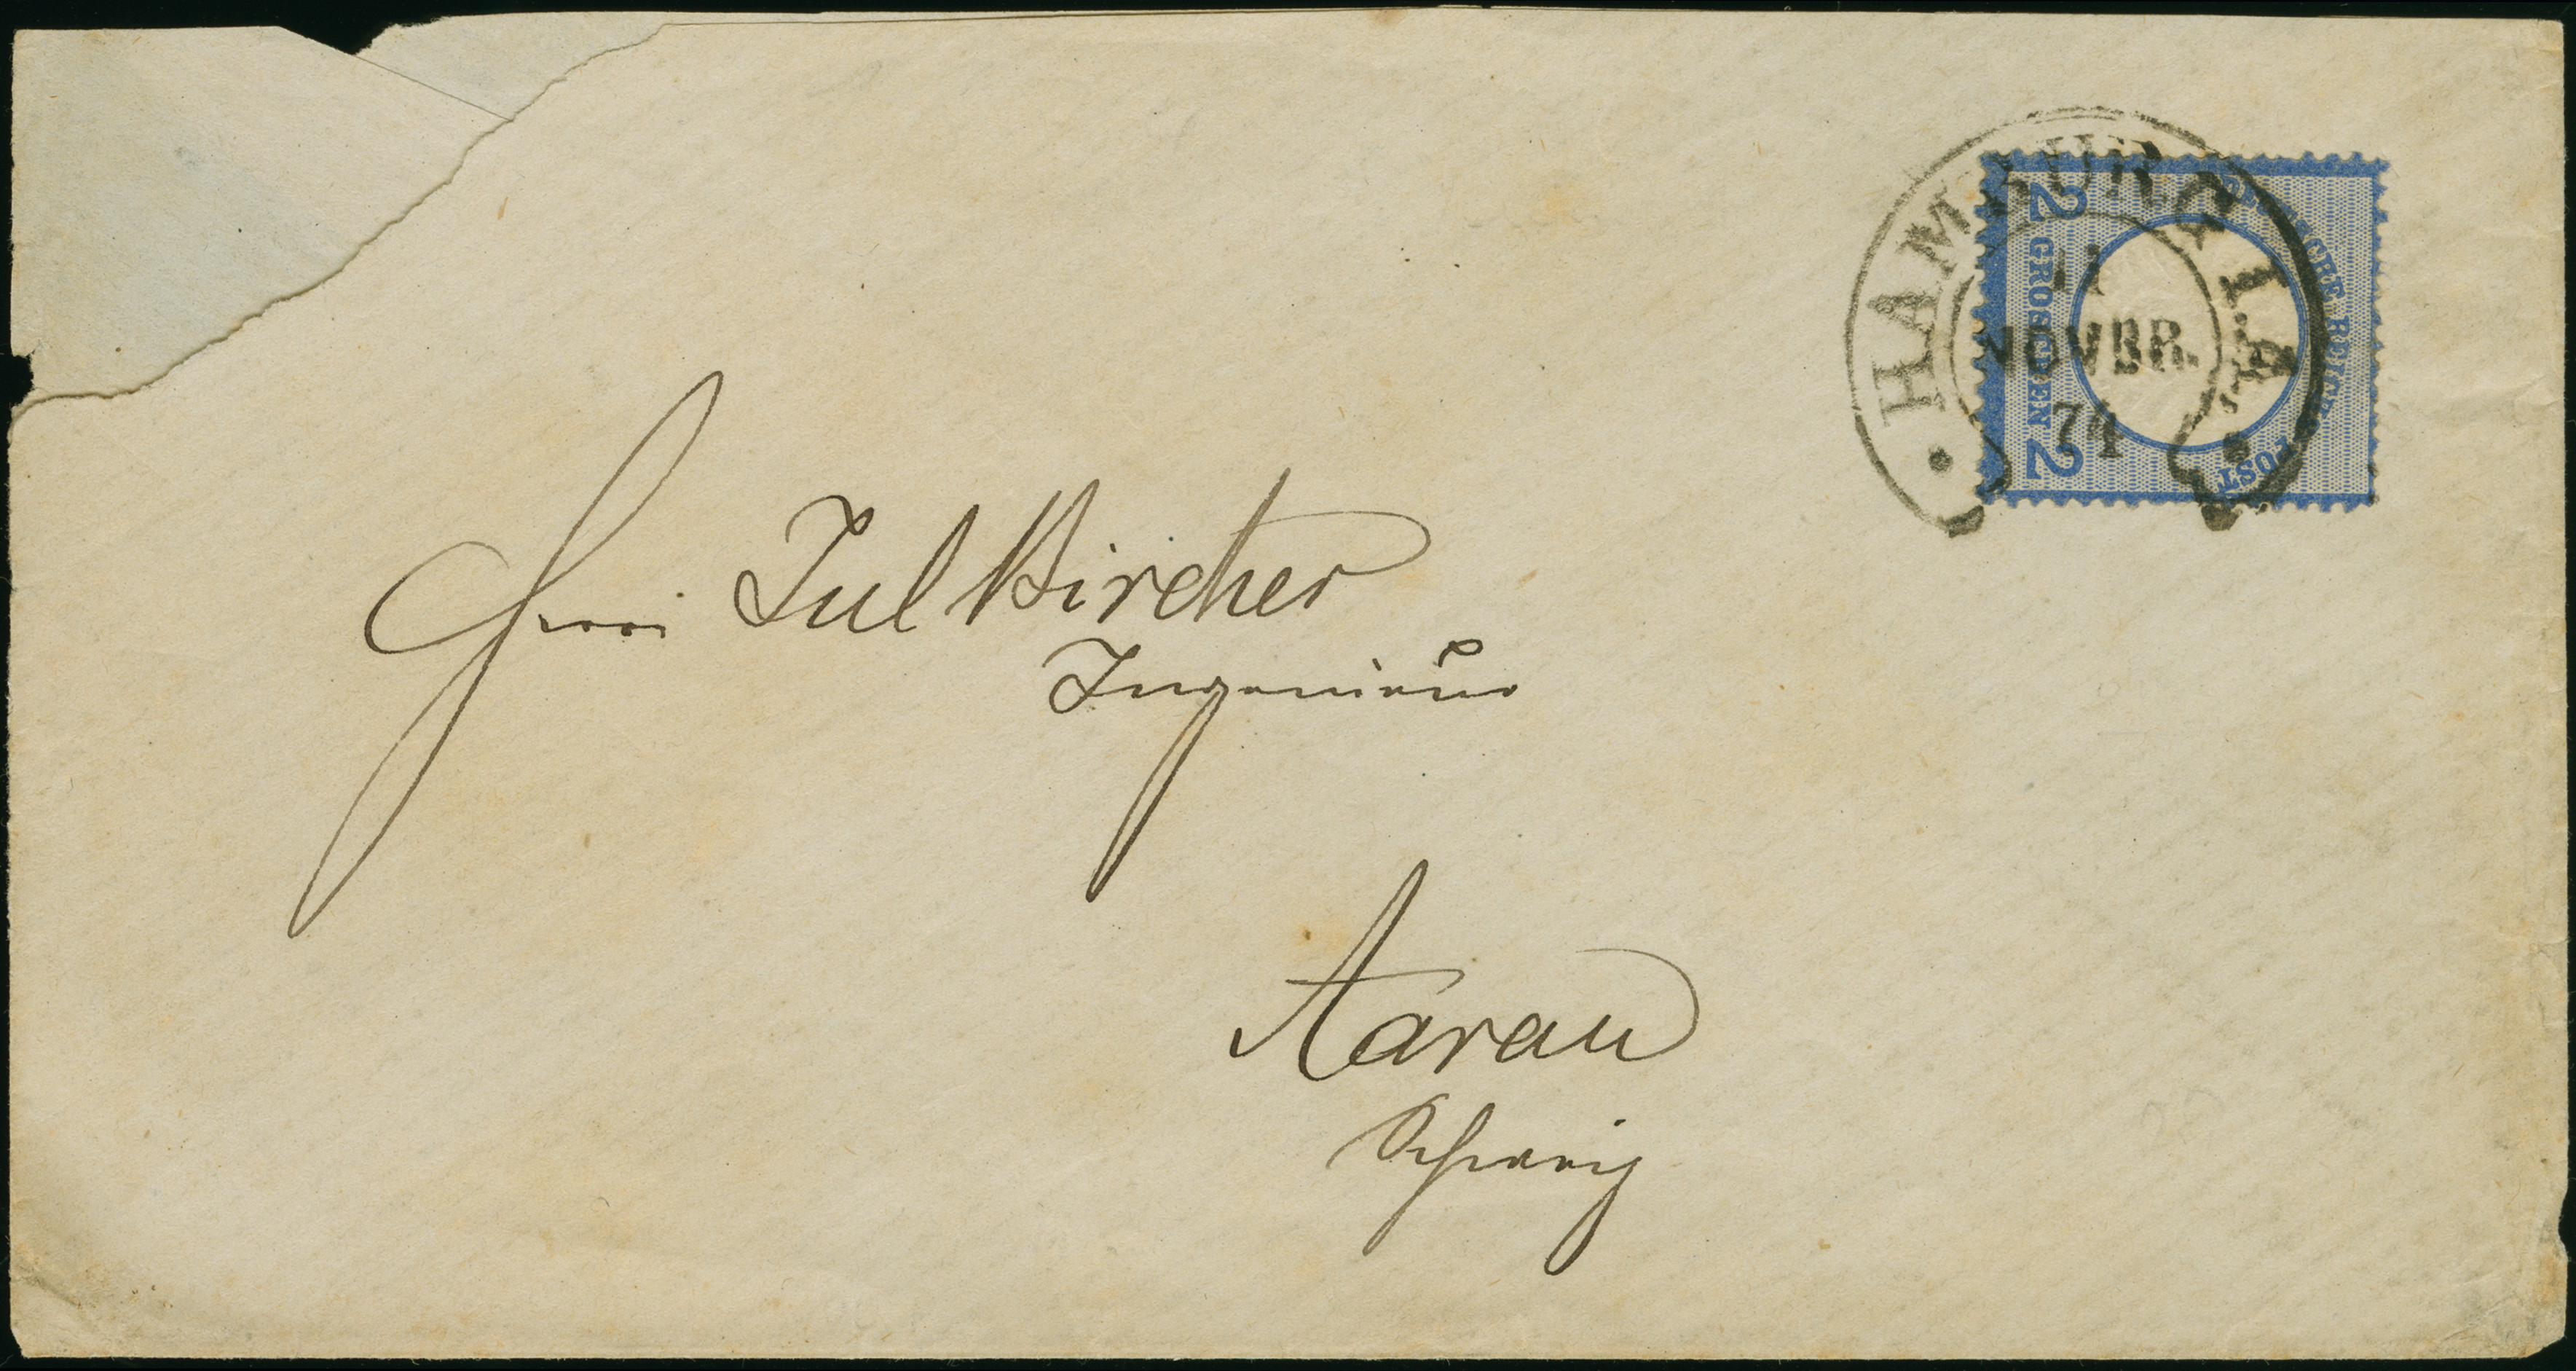 HAMBURG I.A.
11
NOVBR.
74
2 GROSCHEN 2
DEUTSCHE REICHS-POST
Herrn Jul Kircher
Ingenieur
Aarau
Schweiz